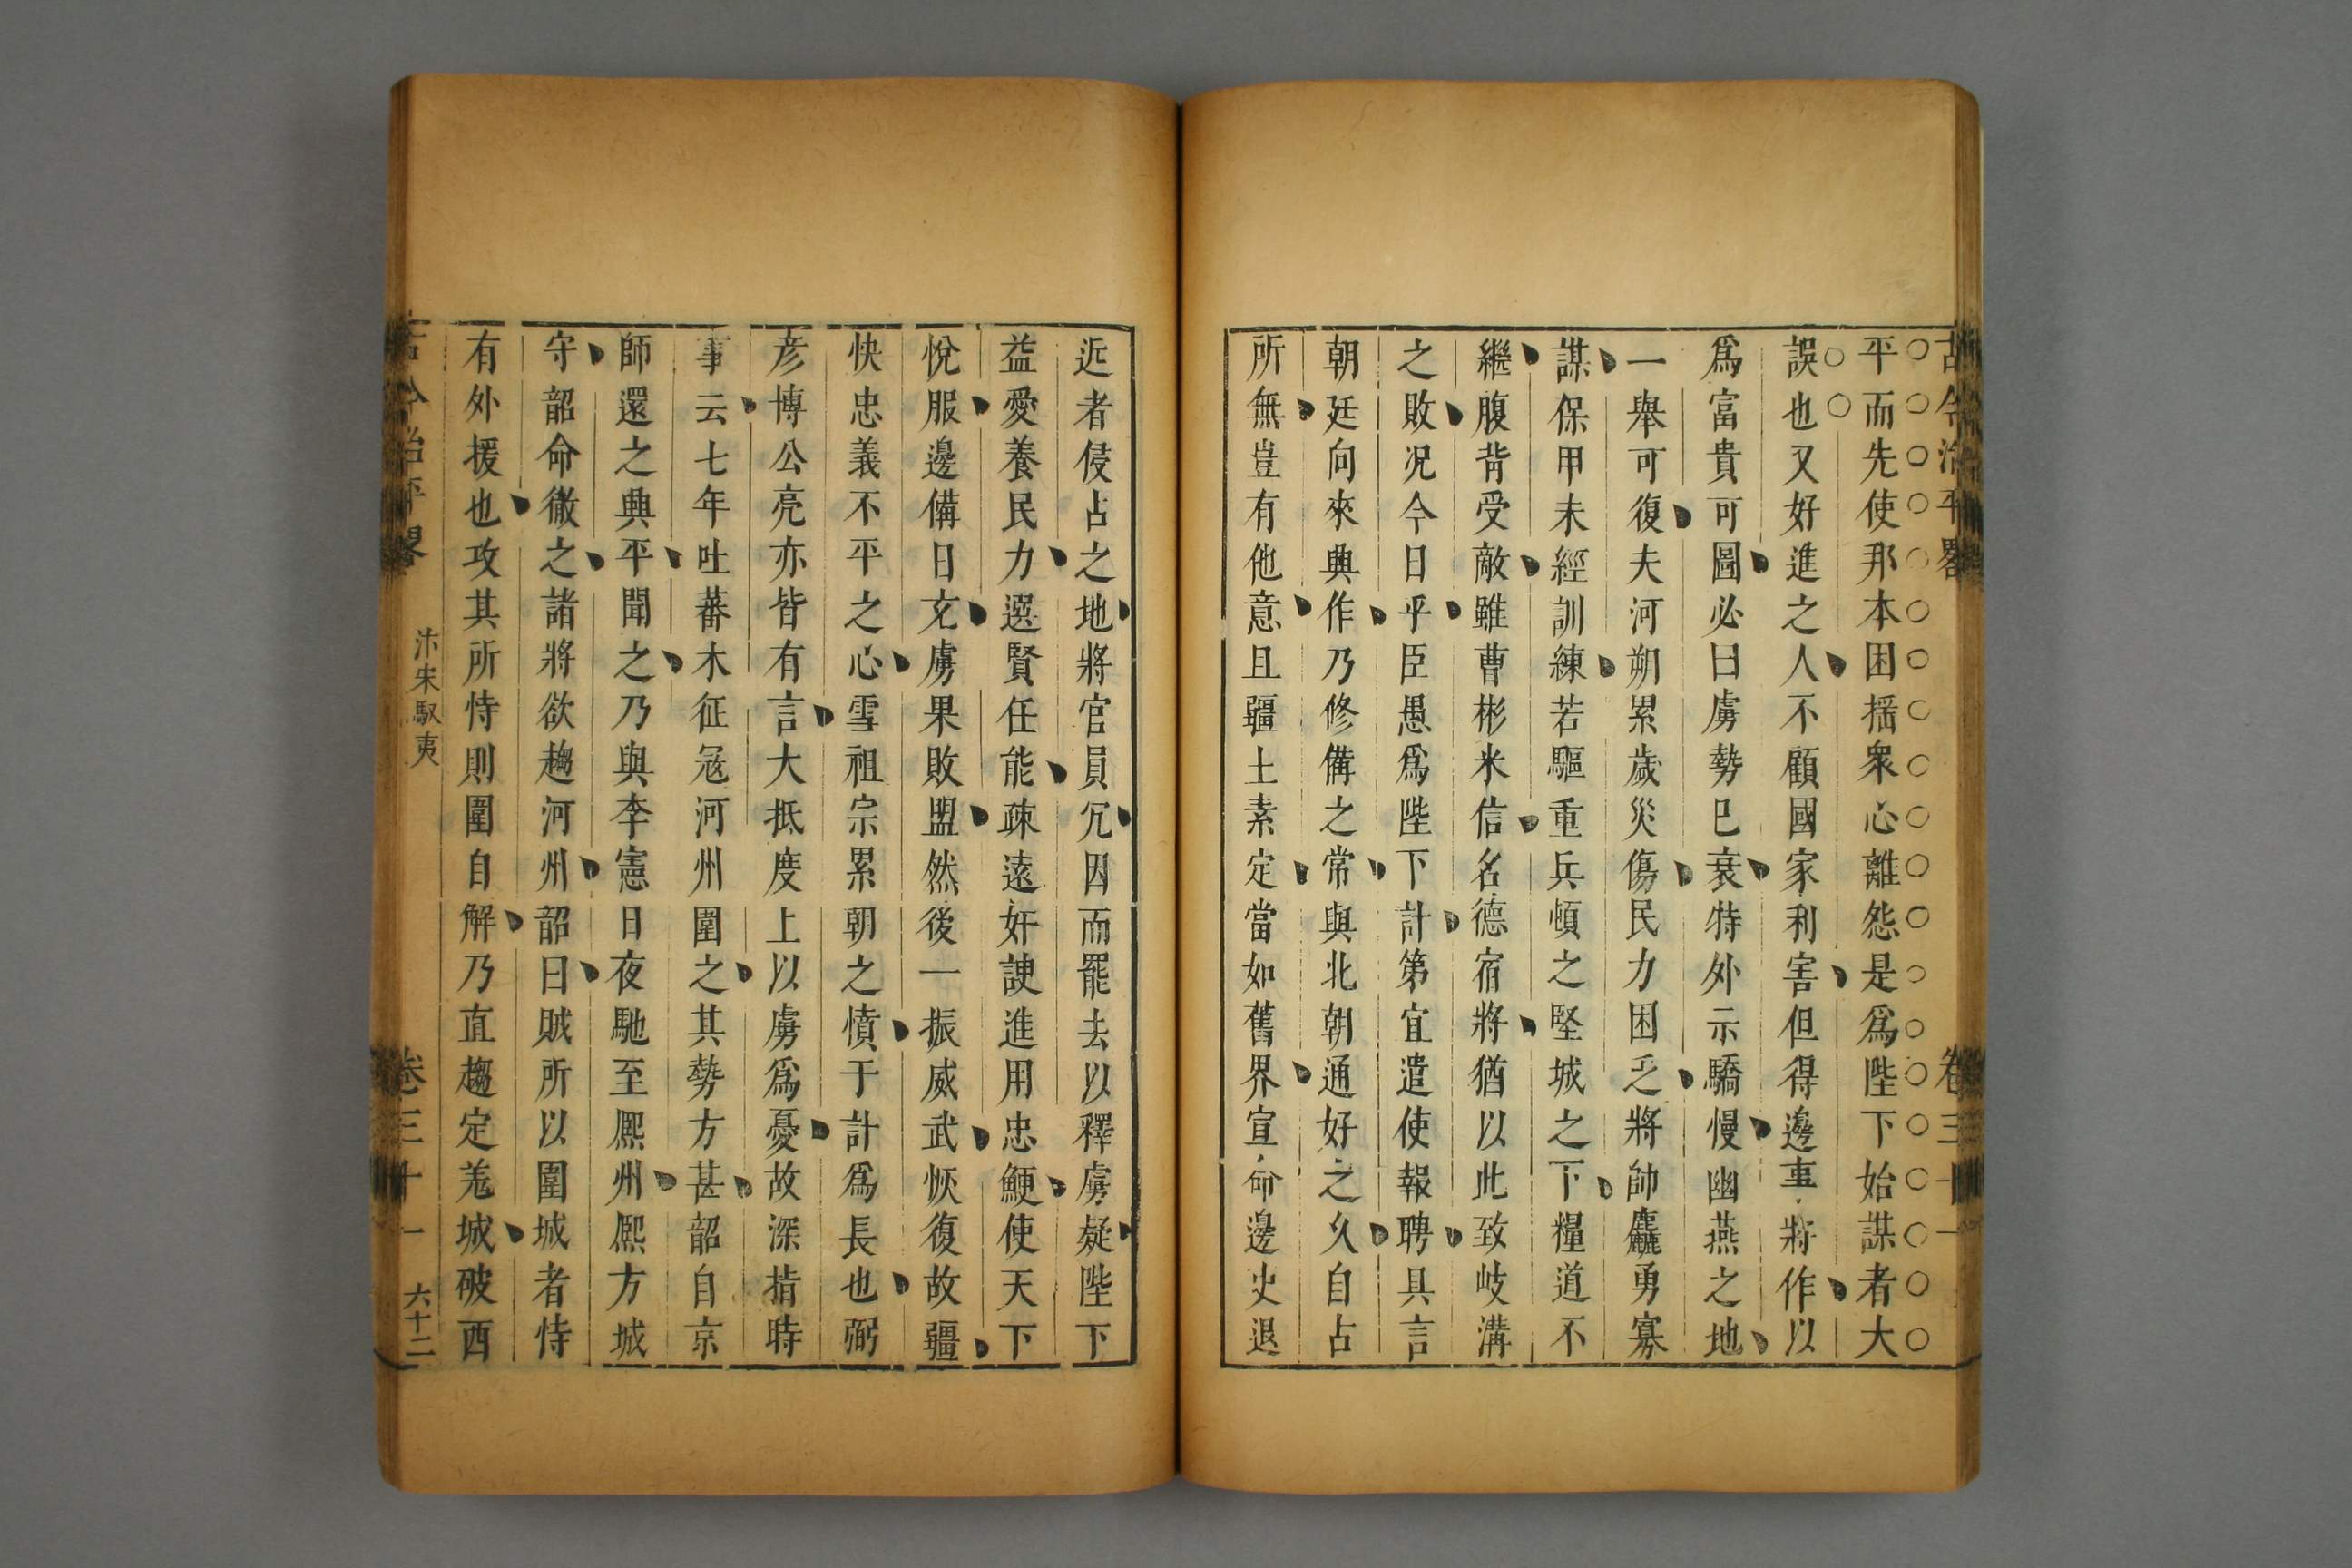 古今治平畧 卷三十一
平而先使那本困揺衆心離怨是爲陛下始謀者大
誤也又好進之人不顧國家利害但得邊事將作以
爲富貴可圖必曰虜勢巳衰特外示驕慢幽燕之地
一舉可復夫河朔累歲災傷民力困乏將帥麤勇寡
謀保甲未經訓練若驅重兵頓之堅城之下糧道不
繼腹背受敵雖曹彬米信名德宿將猶以此致岐溝
之敗况今日乎臣愚爲陛下計第宜遣使報聘具言
朝廷向來興作乃修備之常與北朝通好之久自占
所無豈有他意且疆土素定當如舊界宣命邊吏退
近者侵占之地將官員冗因而罷去以釋虜疑陛下
益愛養民力選賢任能疎遠奸諛進用忠鯁使天下
悅服邊備日充虜果敗盟然後一振威武恢復故疆
快忠義不平之心雪祖宗累朝之憤于計爲長也弼
彦博公亮亦皆有言大抵度上以虜爲憂故深指時
事云七年吐蕃木征寇河州圍之其勢方甚韶自京
師還之興平聞之乃與李憲日夜馳至熈州熈方城
守韶命徹之諸將欲趨河州韶曰賊所以圍城者恃
有外援也攻其所恃則圍自解乃直趨定羌城破西
古今治平畧 汴宋馭夷 卷三十一 六十二